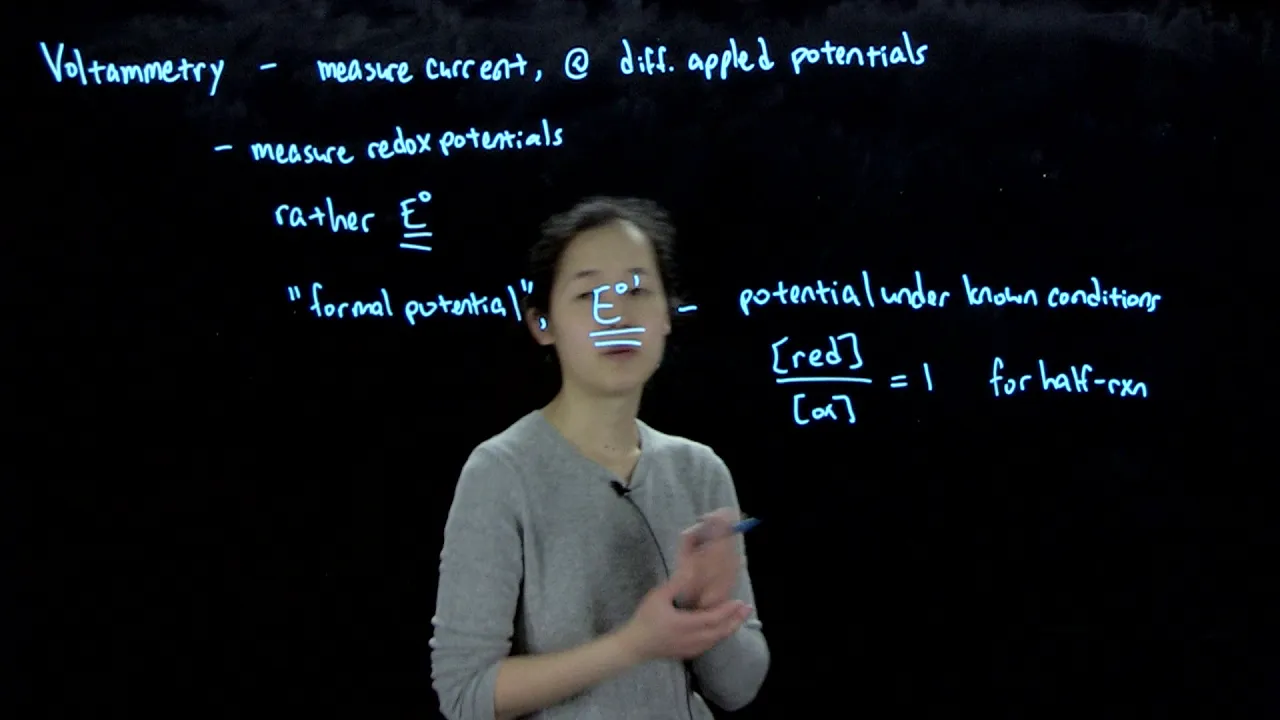 Voltammetry - measure current, @ diff. appled potentials
- measure redox potentials
rather E°
"formal potential", E°' - potential under known conditions
[red]
[ox]
= 1 for half-rxn